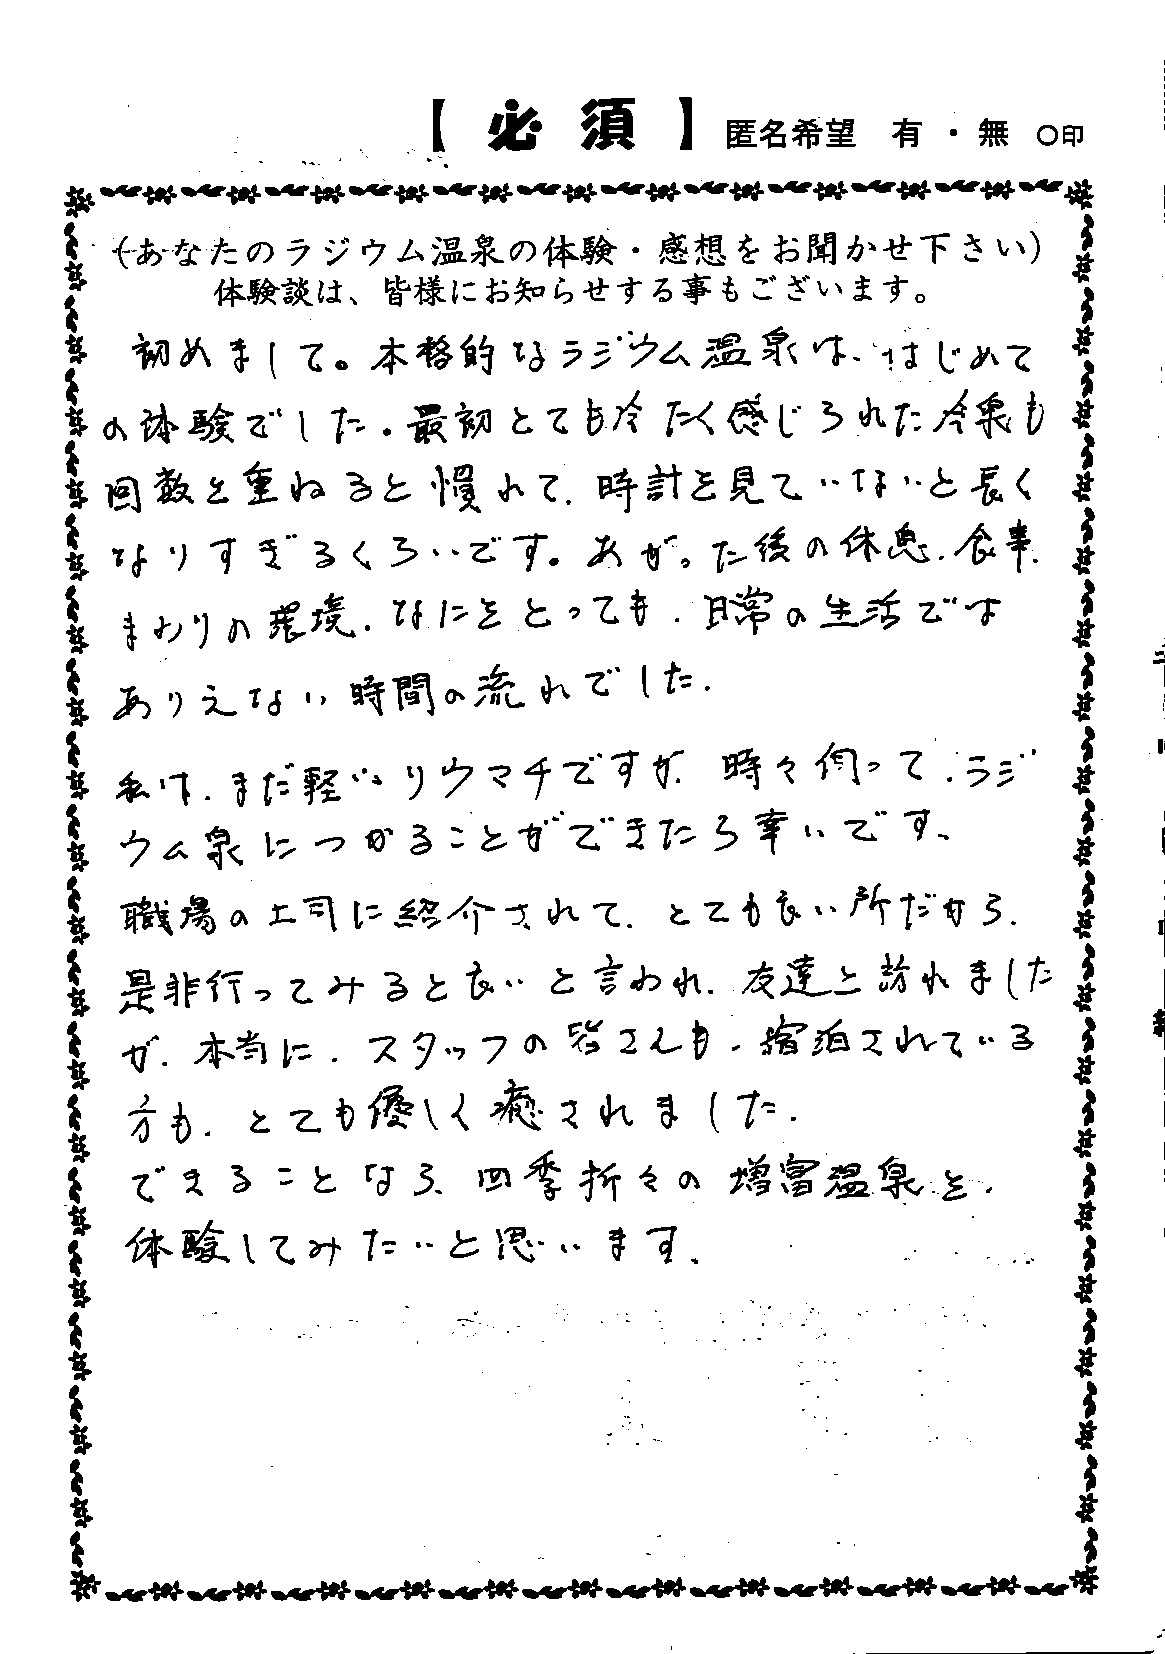 【 必 須 】 匿名希望 有・無 ○印
(あなたのラジウム温泉の体験・感想をお聞かせ下さい)
体験談は、皆様にお知らせする事もございます。
初めまして。本格的なラジウム温泉は、はじめて
の体験でした。最初とても冷たく感じられた冷泉も
回数を重ねると慣れて、時計を見ていないと長く
なりすぎるくらいです。あがった後の休憩、食事、
まわりの環境、なにをとっても、日常の生活では
ありえない時間の流れでした。
私は、まだ軽いリウマチですが、時々伺って、ラジ
ウム泉につかることができたら幸いです。
職場の上司に紹介されて、とても良い所だから、
是非行ってみると良いと言われ、友達と訪れました
が、本当に、スタッフの皆さんも、宿泊されている
方も、とても優しく癒されました。
できることなら、四季折々の増富温泉を、
体験してみたいと思います。